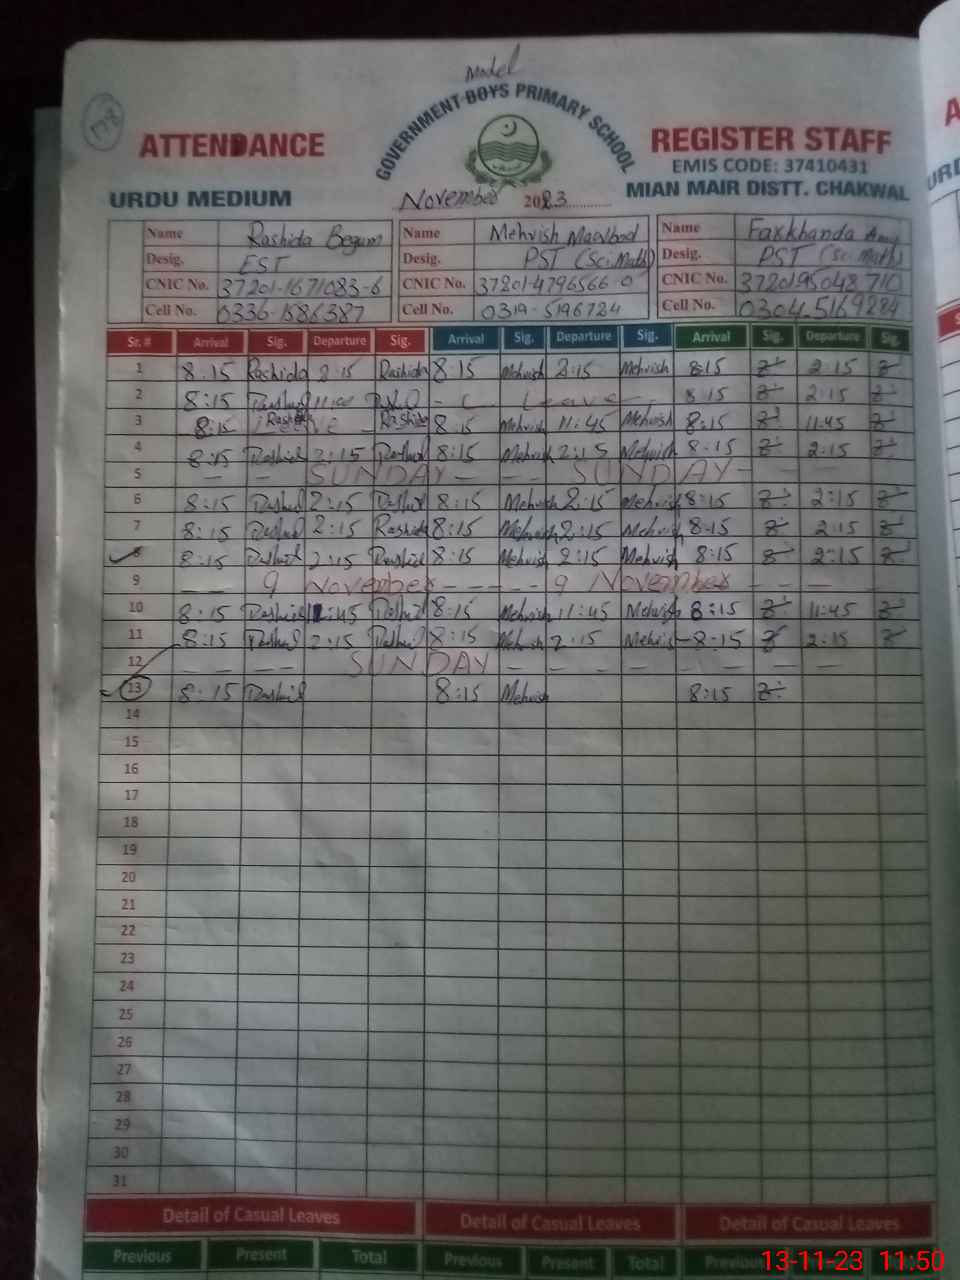 178
Model
GOVERNMENT BOYS PRIMARY SCHOOL
ATTENDANCE REGISTER STAFF
EMIS CODE: 37410431
URDU MEDIUM MIAN MAIR DISTT. CHAKWAL
November 2023
Name Rashida Begum Name Mehvish Name Farkhanda
Desig. EST Desig. PST (Sci.Math) Desig. PST (Sci.Math)
CNIC No. 37201-1671083-6 CNIC No. 37201-4796566-0 CNIC No. 3720195048710
Cell No. 0336-1586387 Cell No. 0319-5196724 Cell No. 0304-5169284
Sr. # Arrival Sig. Departure Sig. Arrival Sig. Departure Sig. Arrival Sig. Departure Sig.
1 8:15 Rashida 2:15 Rashida 8:15 Mehvish 2:15 Mehvish 8:15 2:15
2 8:15 Rashid Rashid Leave 8:15 2:15
3 8:15 Rashida Rashida 8:15 Mehvish 11:45 Mehvish 8:15 11:45
4 8:15 Rashid 2:15 Rashid 8:15 Mehvish 2:15 Mehvish 8:15 2:15
5 SUNDAY SUNDAY
6 8:15 Rashid 2:15 Rashid 8:15 Mehvish 2:15 Mehvish 8:15 2:15
7 8:15 Rashid 2:15 Rashida 8:15 Mehvish 2:15 Mehvish 8:15 2:15
8 8:15 Rashid 2:15 Rashid 8:15 Mehvish 2:15 Mehvish 8:15 2:15
9 9 November 9 November
10 8:15 Rashid 11:45 Rashid 8:15 Mehvish 11:45 Mehvish 8:15 11:45
11 8:15 Rashid 2:15 Rashid 8:15 Mehvish 2:15 Mehvish 8:15 2:15
12 SUNDAY
13 8:15 Rashid 8:15 Mehvish 8:15
14
15
16
17
18
19
20
21
22
23
24
25
26
27
28
29
30
31
Detail of Casual Leaves Detail of Casual Leaves Detail of Casual Leaves
Previous Present Total Previous Present Total Previous
13-11-23 11:50